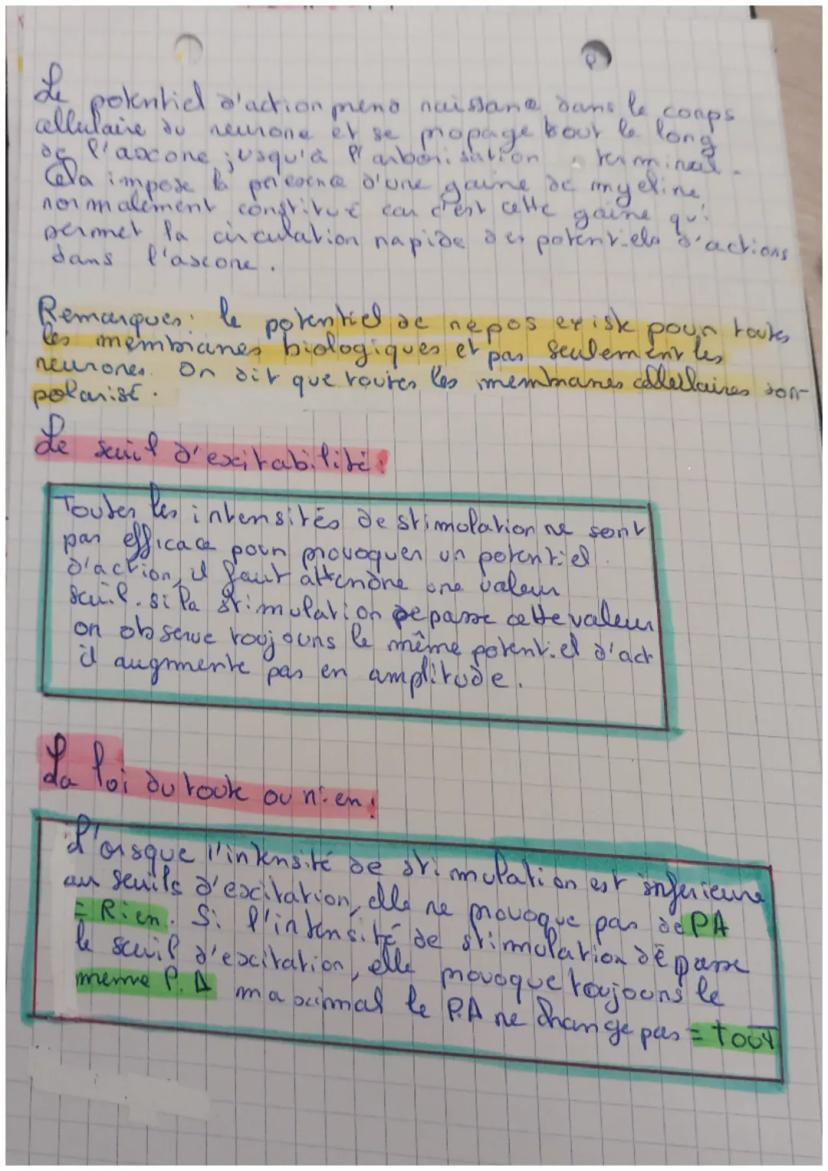 Le potentiel d'action prend naissance dans le corps
cellulaire du neurone et se propage tout le long
de l'axone jusqu'à l'arborisation terminal.
Cela impose la présence d'une gaine de myeline
normalement constitué car c'est cette gaine qui
permet la circulation rapide des potentiels d'actions
dans l'axone.
Remarques: le potentiel de repos existe pour toutes
les membranes biologiques et pas seulement les
neurones. On dit que toutes les membranes cellulaires son
polarisé.
Le seuil d'excitabilité:
Toutes les intensités de stimulation ne sont
pas efficace pour provoquer un potentiel
d'action, il faut attendre une valeur
seuil. si la stimulation depasse cette valeur
on observe toujours le même potentiel d'act
il augmente pas en amplitude.
La loi du toute ou rien:
L'orsque l'intensité de stimulation est inférieure
au seuils d'excitation, elle ne provoque pas de PA
= Rien. Si l'intensité de stimulation dépasse
le seuil d'excitation, elle provoque toujours le
meme P.A maximal le P.A ne change pas = tout